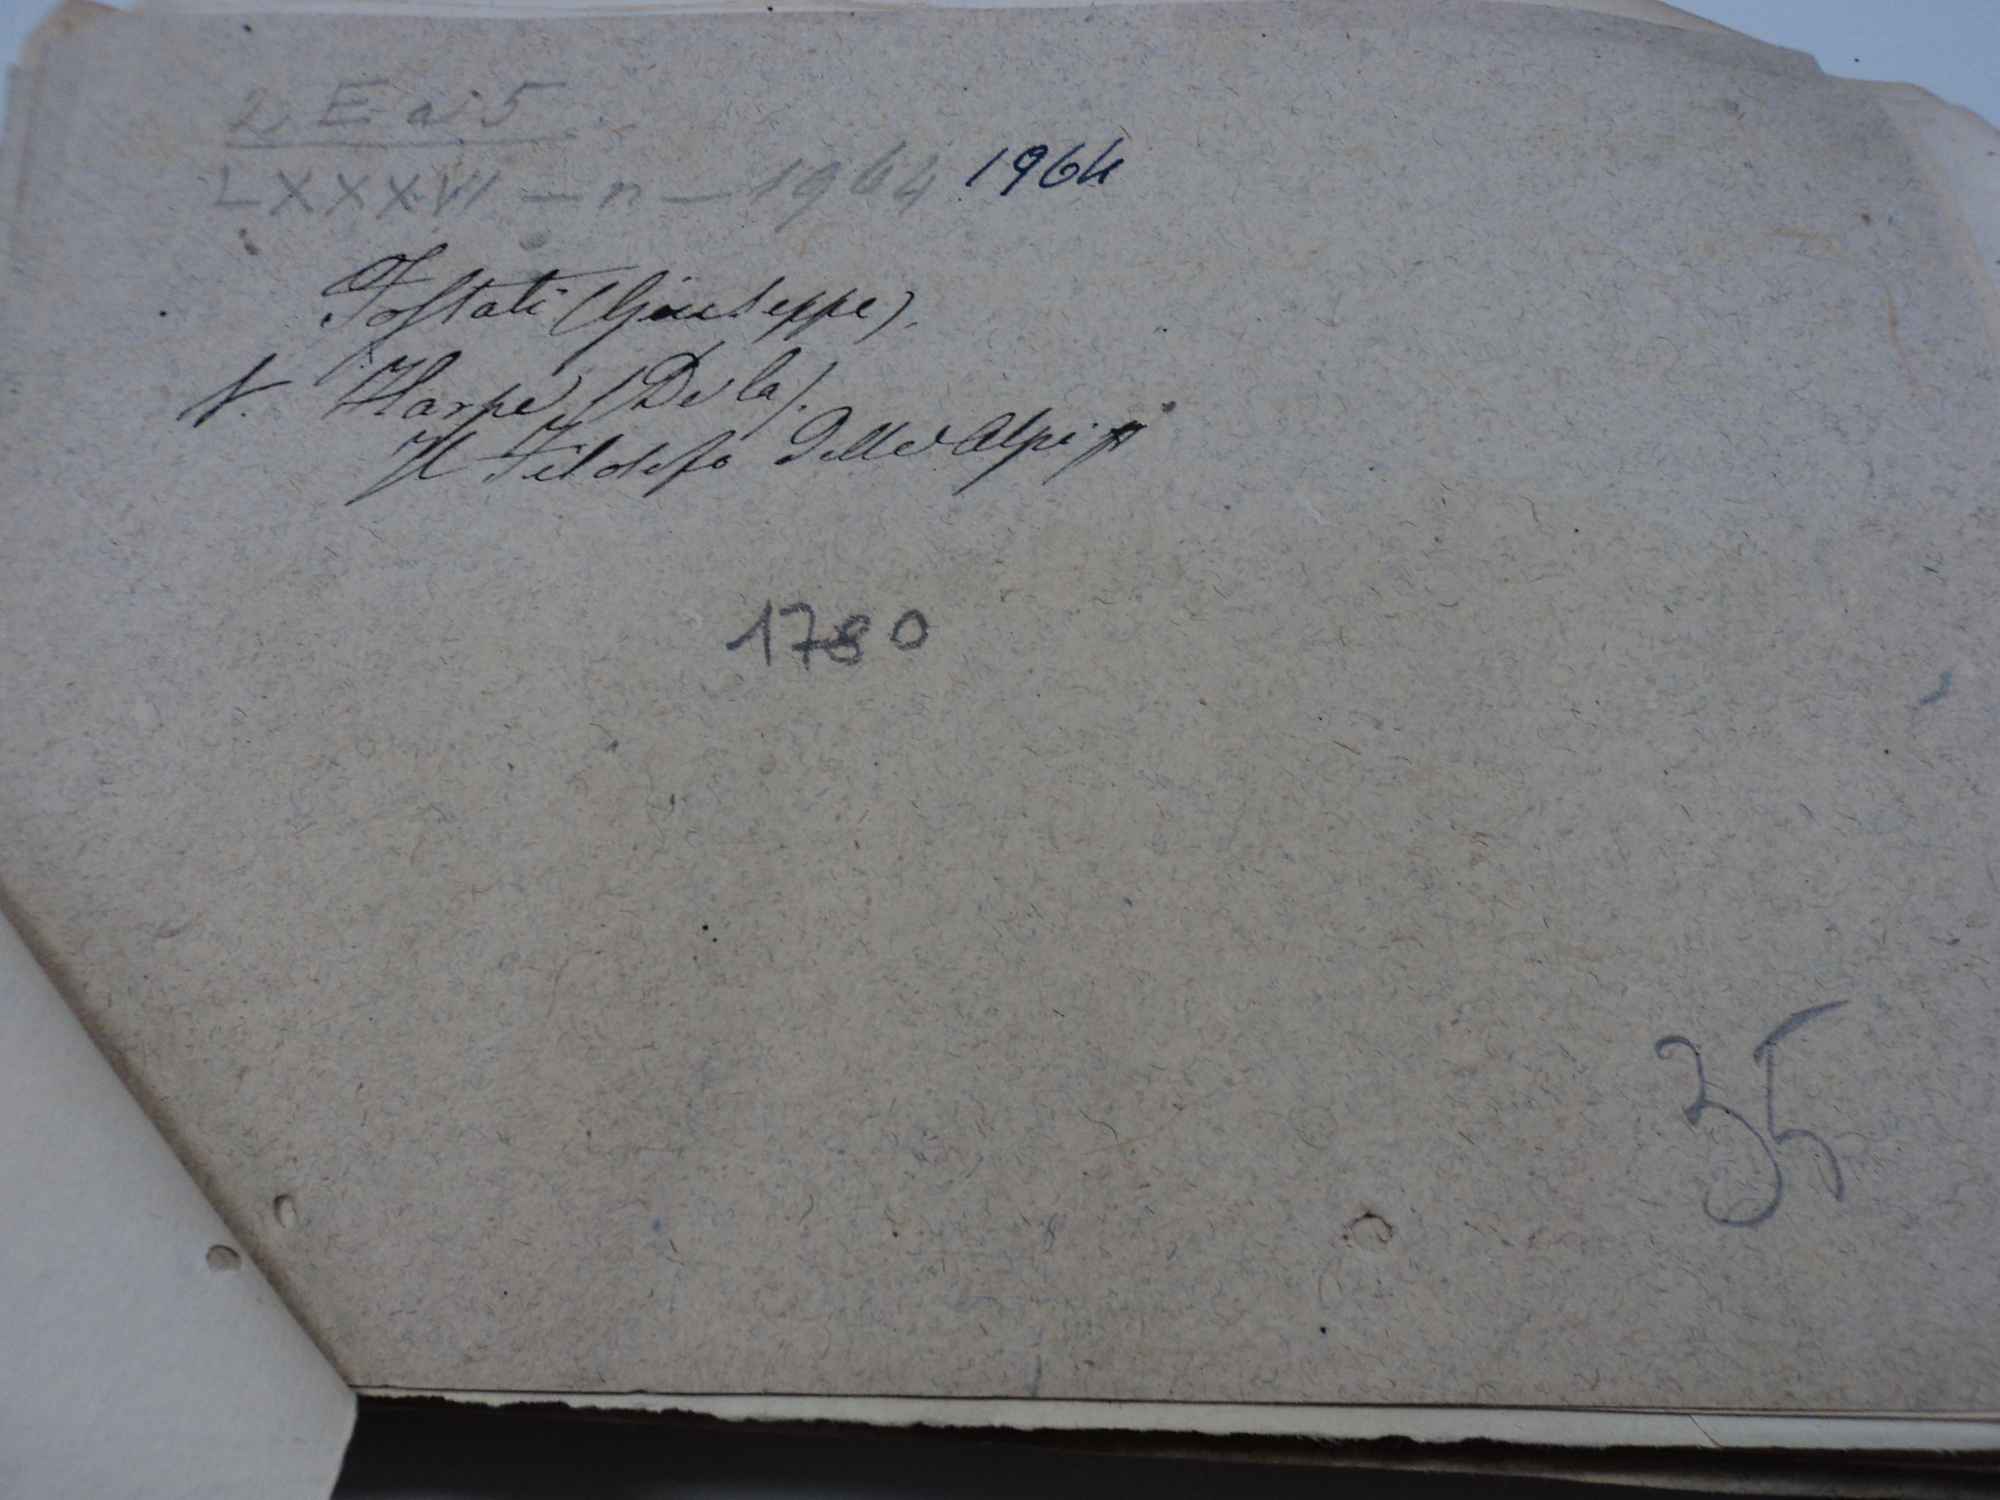 2 E ai 5
LXXXVI - n - 1964 1964
Tostati (Giuseppe).
V. Harpe (De la).
Il Filosofo delle Alpi
1780
35